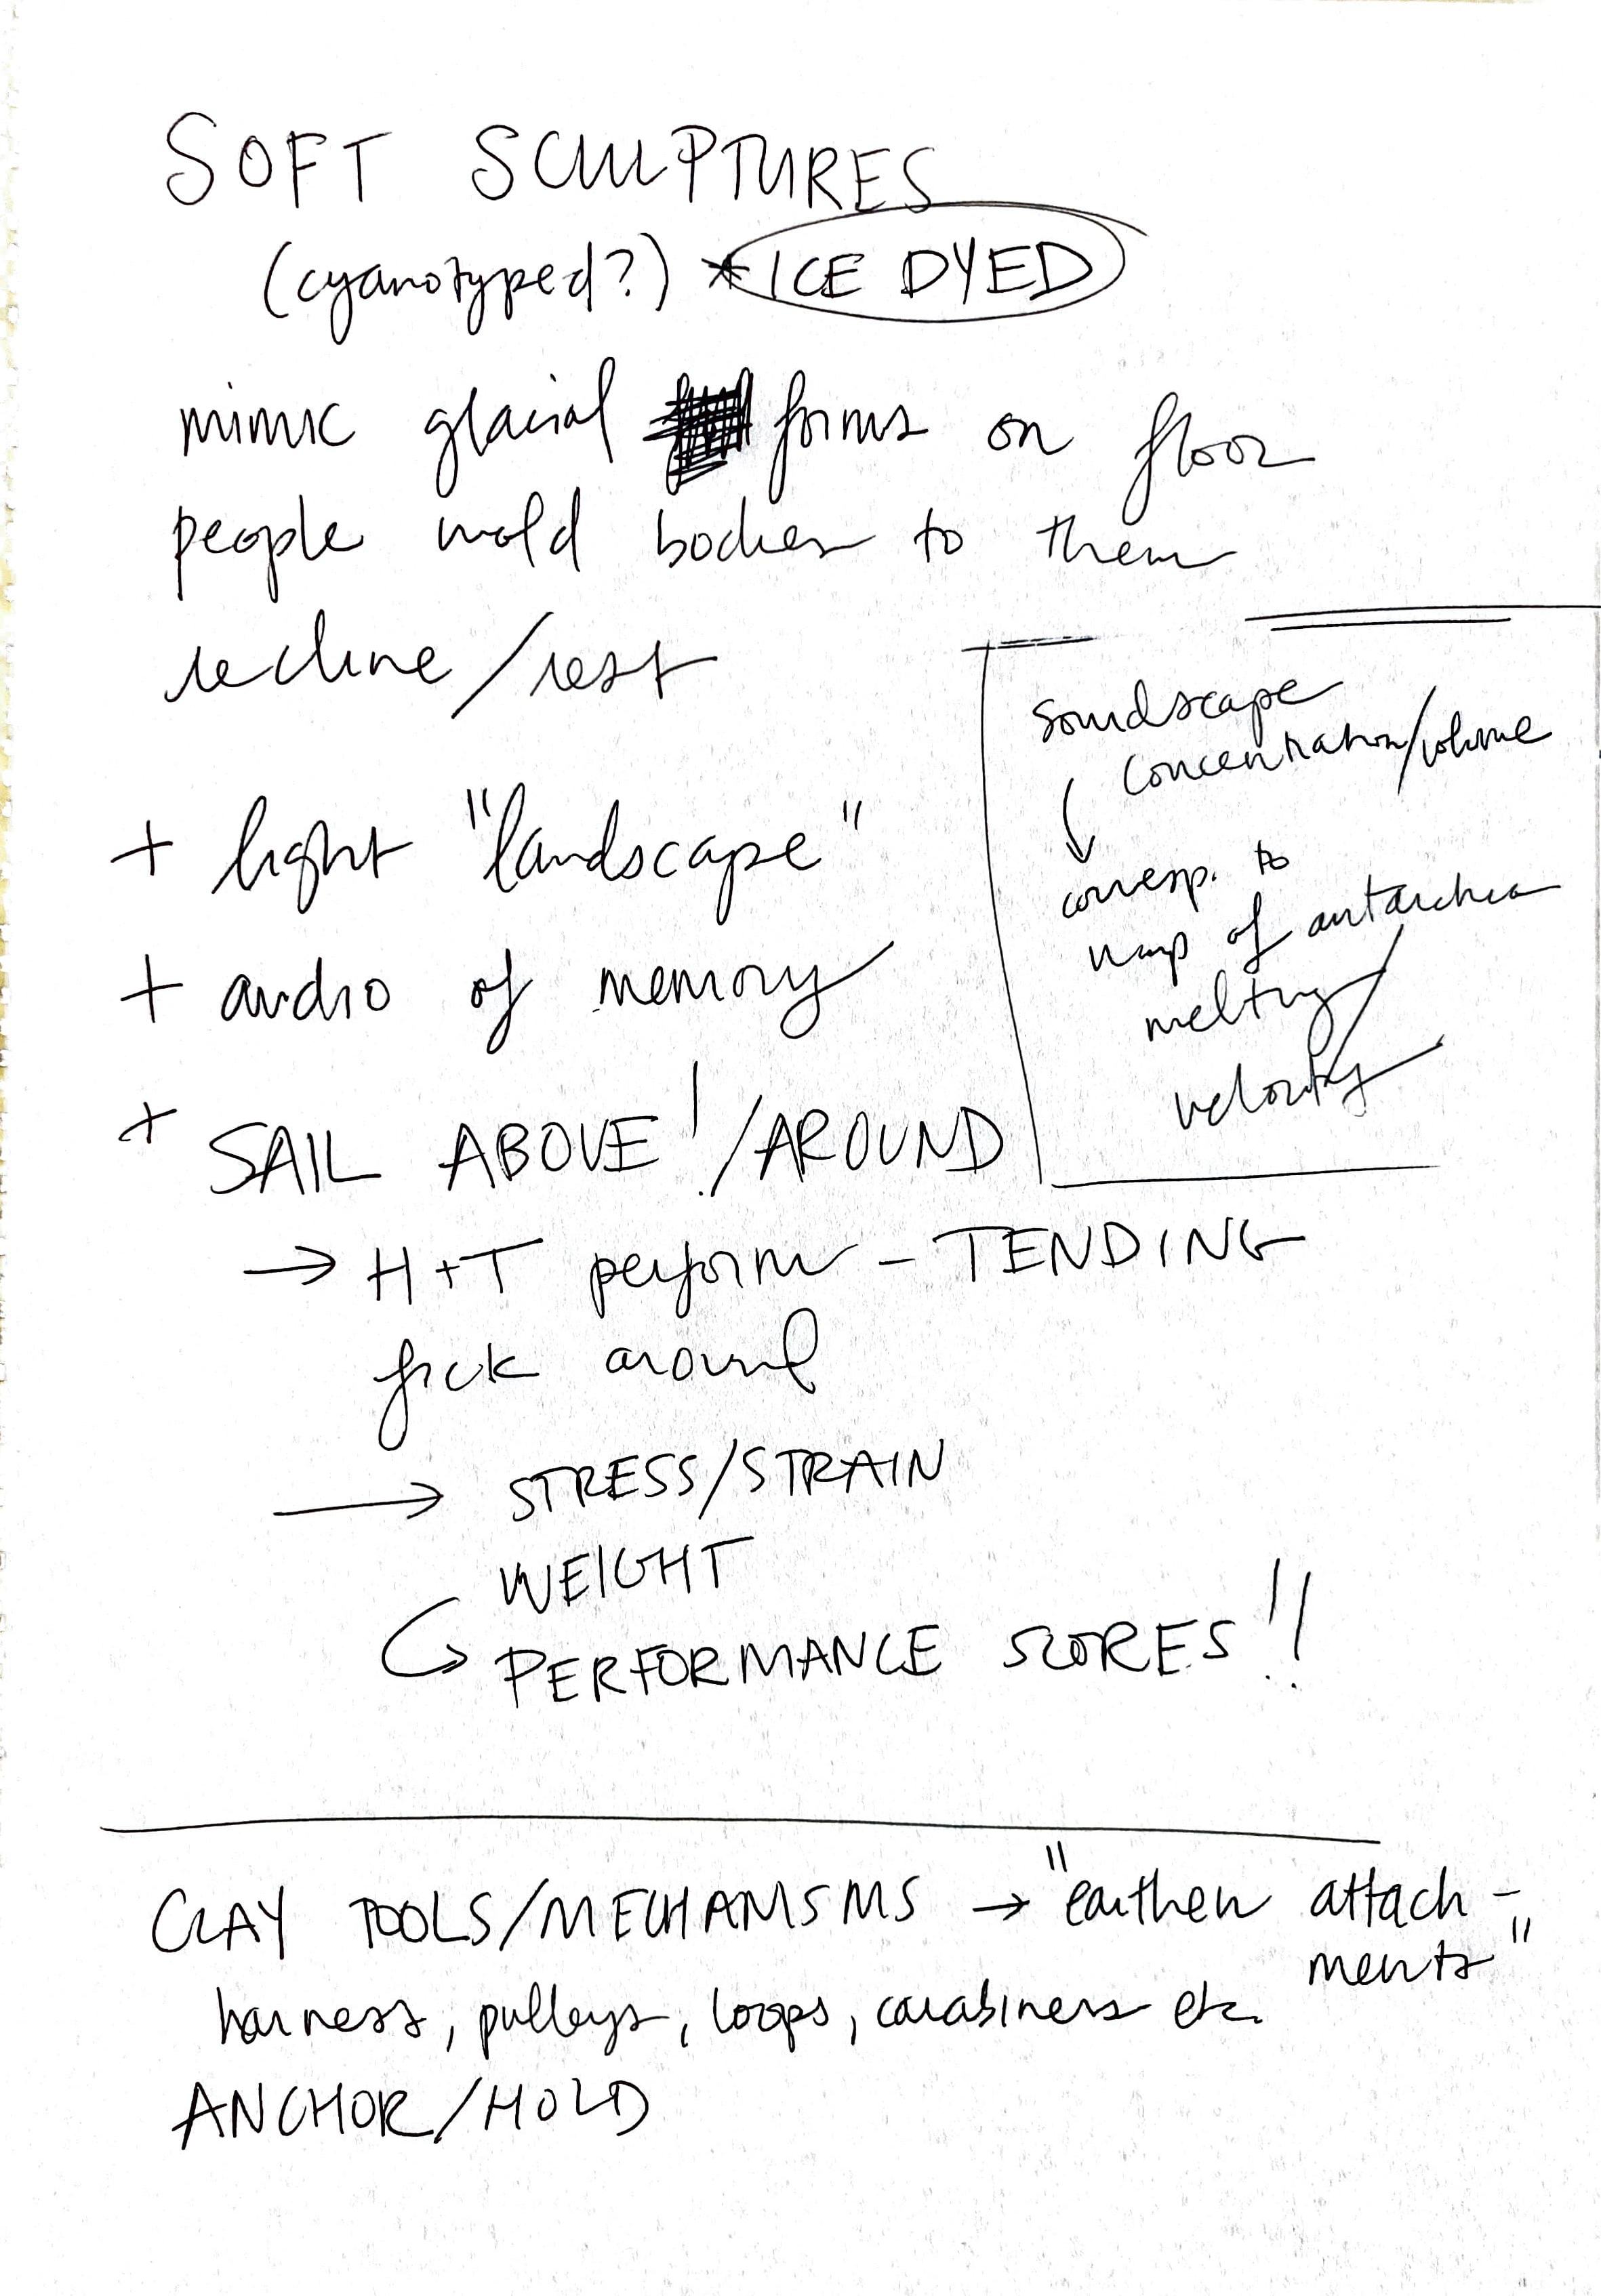 SOFT SCULPTURES
(cyanotyped?) *ICE DYED
mimic glacial forms on floor
people mold bodies to them
recline/rest
+ light "landscape"
+ audio of memory
+ SAIL ABOVE!/AROUND
→ H+T perform - TENDING
fuck around
→ STRESS/STRAIN
WEIGHT
↪ PERFORMANCE SCORES!!
soundscape
concentration/volume
↓
corresp. to
map of antarctica
melting/
velocity
CLAY TOOLS/MECHANISMS → "earthen attach-
ments"
harness, pulleys, loops, carabiners etc.
ANCHOR/HOLD